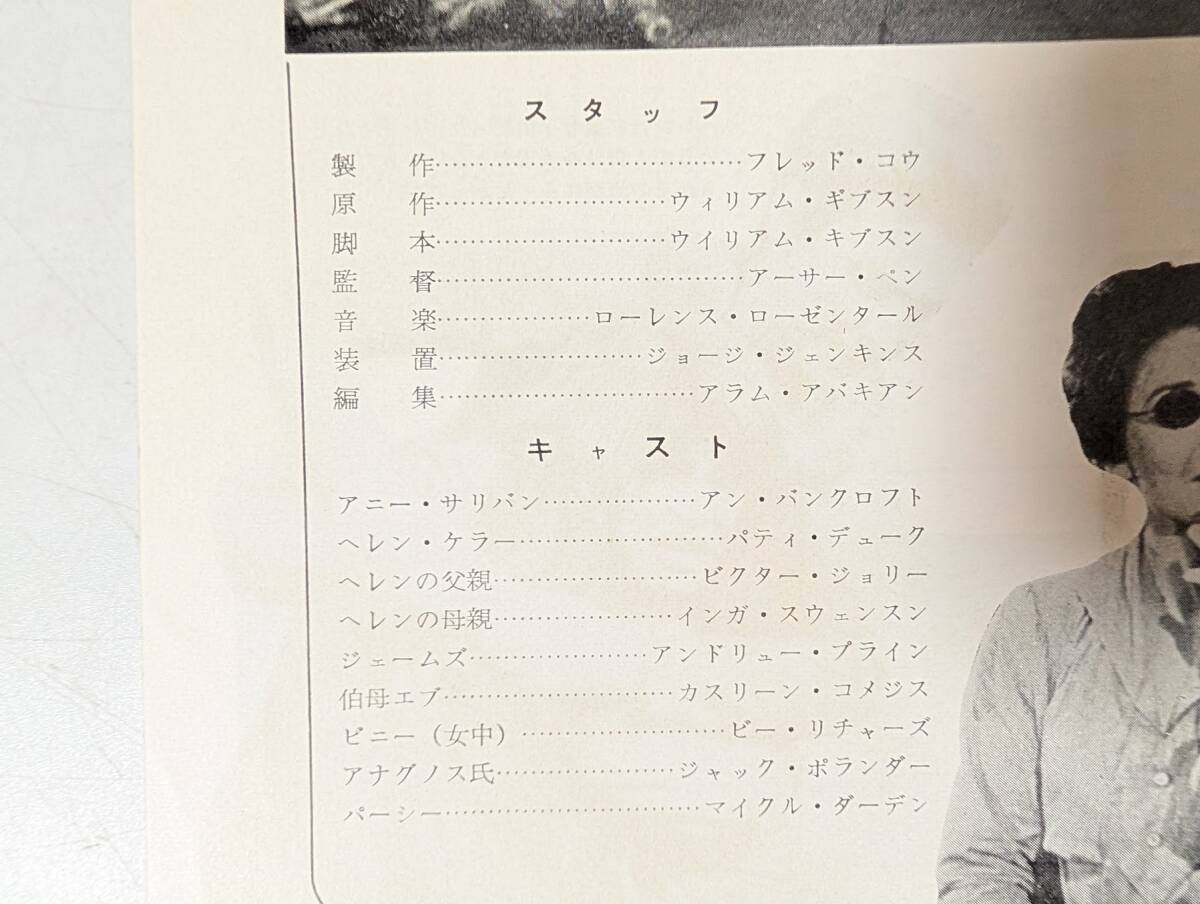 スタッフ
製作…………………………フレッド・コウ
原作………………………ウィリアム・ギブスン
脚本………………………ウイリアム・キブスン
監督…………………………アーサー・ペン
音楽………………ローレンス・ローゼンタール
装置……………………ジョージ・ジェンキンス
編集…………………………アラム・アバキアン
キャスト
アニー・サリバン………………アン・バンクロフト
ヘレン・ケラー……………………パティ・デューク
ヘレンの父親……………………ビクター・ジョリー
ヘレンの母親…………………インガ・スウェンスン
ジェームズ…………………アンドリュー・プライン
伯母エブ………………………カスリーン・コメジス
ビニー(女中)……………………ビー・リチャーズ
アナグノス氏…………………ジャック・ポランダー
パーシー…………………………マイクル・ダーデン